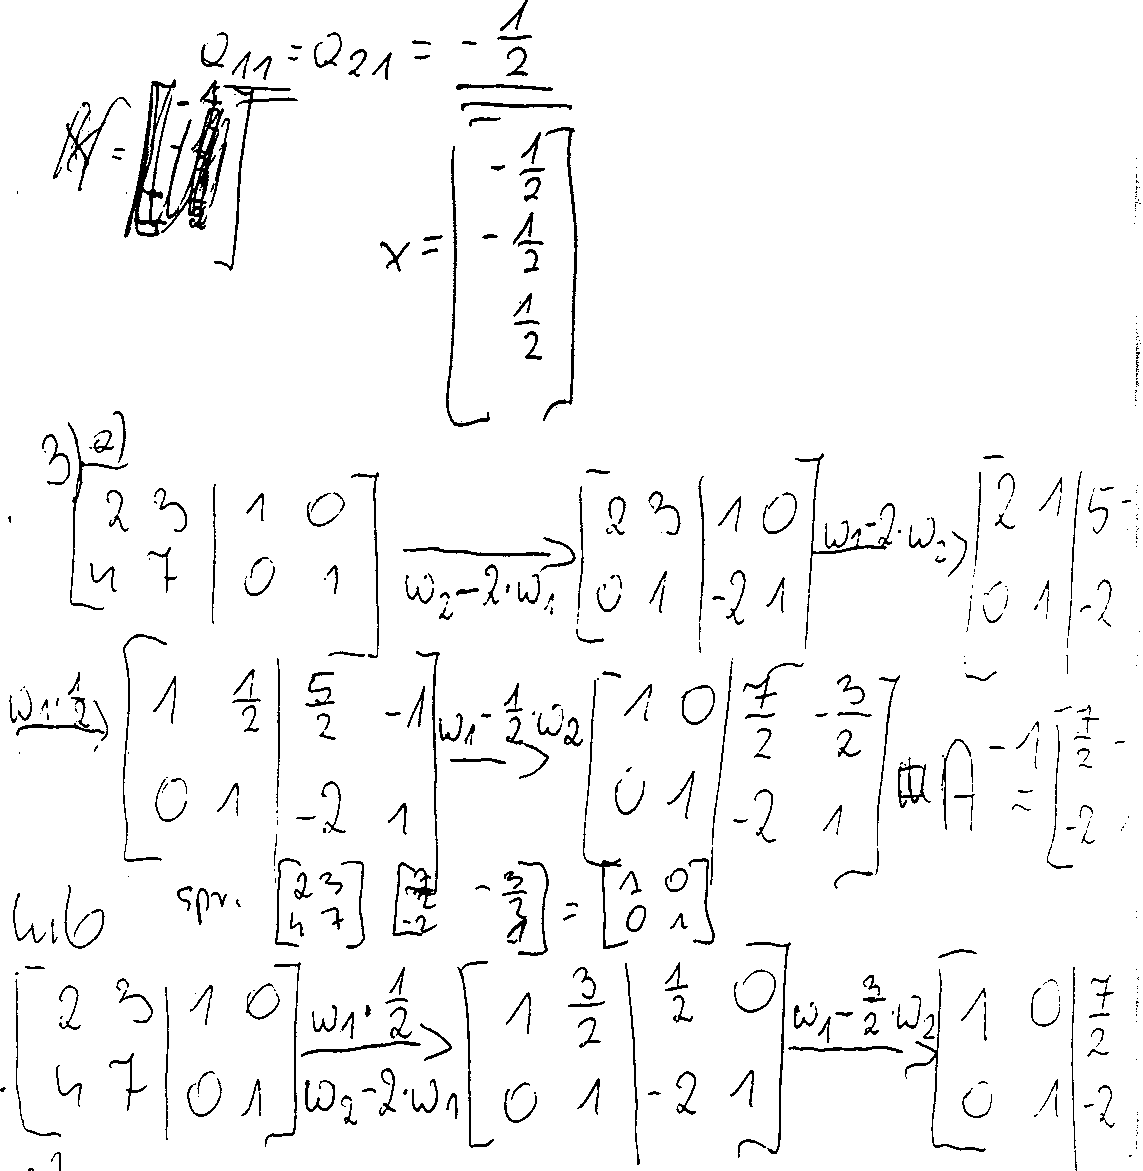 a₁₁ = a₂₁ = - 1/2
x = [ - 1/2
- 1/2
1/2 ]
3) a)
[ 2 3 | 1 0 ; 4 7 | 0 1 ] → w₂-2·w₁ [ 2 3 | 1 0 ; 0 1 | -2 1 ] → w₁-2·w₂ [ 2 1 | 5 - ; 0 1 | -2
w₁·1/2 → [ 1 1/2 | 5/2 -1 ; 0 1 | -2 1 ] w₁-1/2·w₂ → [ 1 0 | 7/2 -3/2 ; 0 1 | -2 1 ] A⁻¹ = [ 7/2 - ; -2
spr. [ 2 3 ; 4 7 ] [ 7/2 -3/2 ; -2 1 ] = [ 1 0 ; 0 1 ]
lub
[ 2 3 | 1 0 ; 4 7 | 0 1 ] w₁·1/2 → w₂-2·w₁ [ 1 3/2 | 1/2 0 ; 0 1 | -2 1 ] w₁-3/2·w₂ → [ 1 0 | 7/2 ; 0 1 | -2